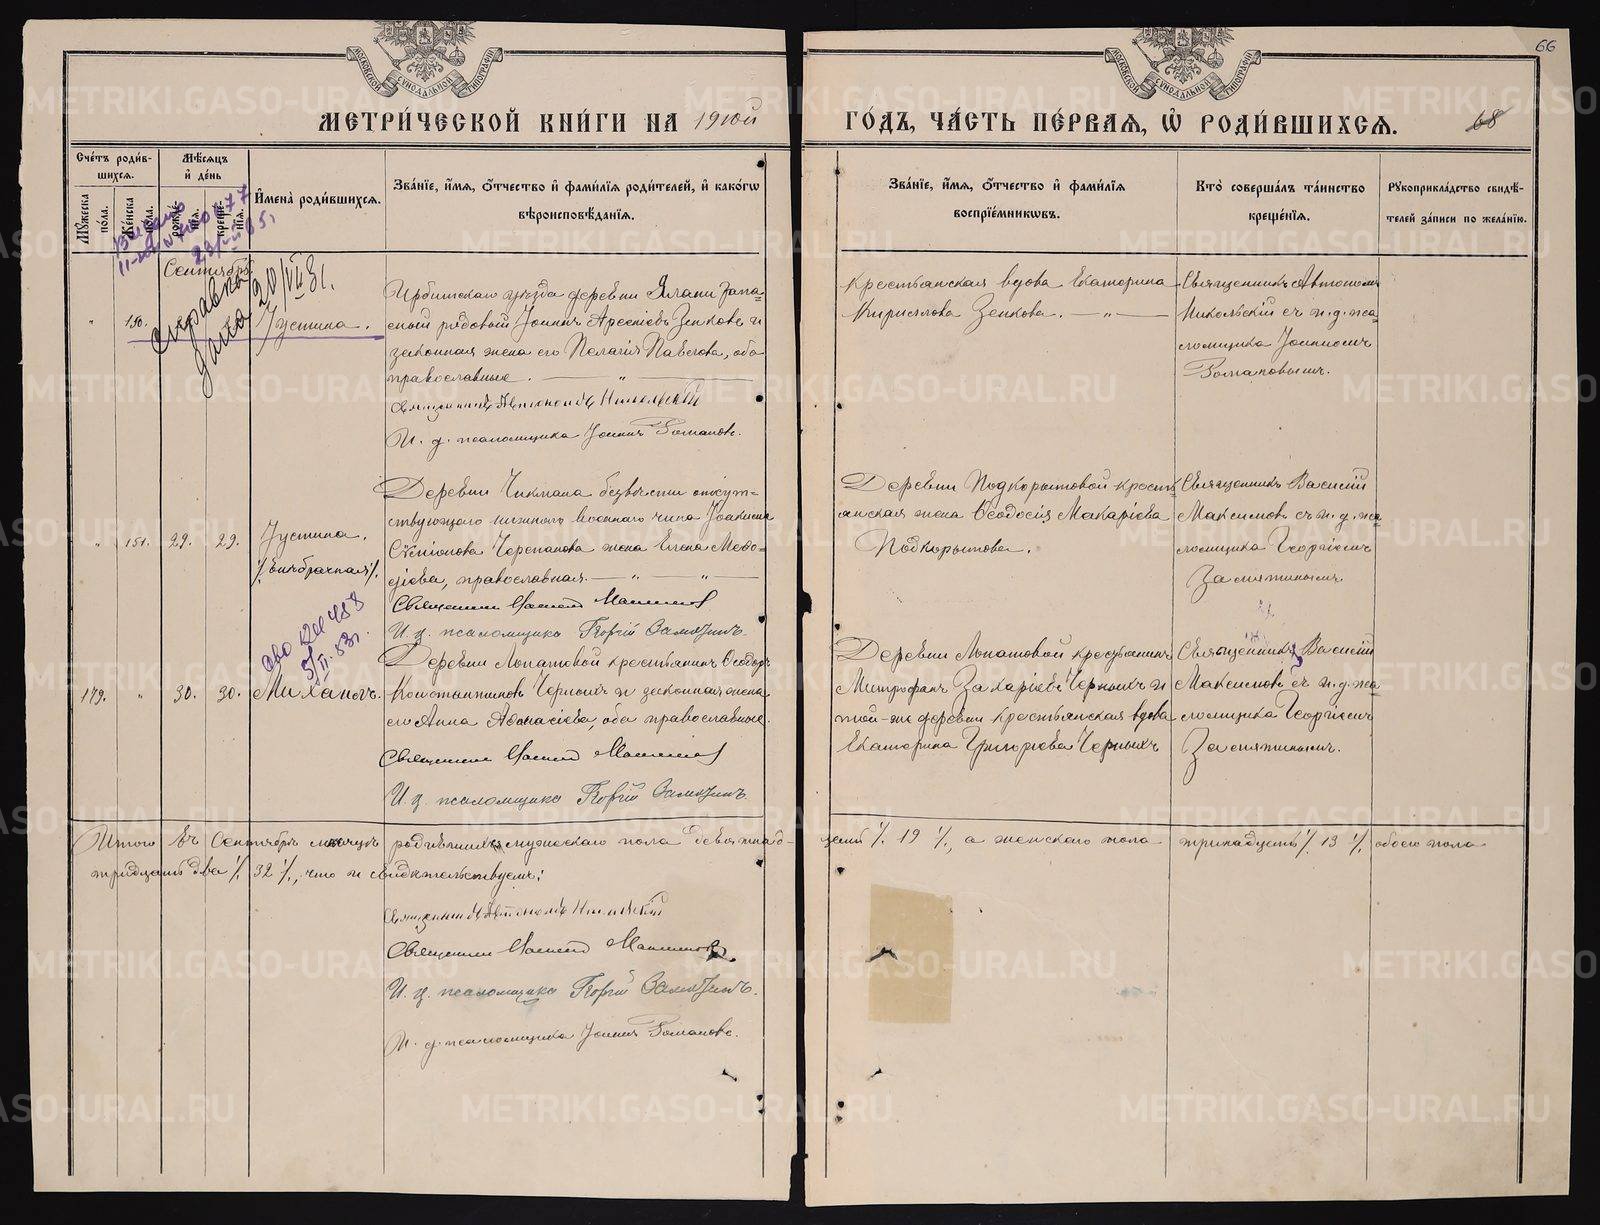 МЕТРИ́ЧЕСКОЙ КНИ́ГИ НА 1910й
ГО́ДЪ, ЧА́СТЬ ПЕ́РВАЯ, Ѡ РОДИ́ВШИХСЯ.
66
68
МОСКОВСКОЙ СѴНОДАЛЬНОЙ ТИПОГРАФІИ
МОСКОВСКОЙ СѴНОДАЛЬНОЙ ТИПОГРАФІИ
Сче́тъ роди́в-
шихся.
Мѣ́сяцъ
и҆ де́нь
Му́жеска
по́ла.
Же́нска
по́ла.
рожде́-
нія.
креще-
нія.
И҆мена̀ роди́вшихся.
Зва́ніе, и҆́мя, ѻ҆́тчество и҆ фами́лія роди́телей, и҆ како́гѡ
вѣроисповѣ́данія.
Зва́ніе, и҆́мя, ѻ҆́тчество и҆ фами́лія
воспріе́мниковъ.
Кто̀ соверша́лъ та́инство
креще́нія.
Рꙋкоприкла́дство свидѣ́-
телей за́писи по жела́нію.
Сентябрь
справка
дана
20/VII 31.
"
150.
Іустина.
Ирбитскаго уѣзда деревни Ялани запа-
сный рядовой Іоаннъ Арсеніевъ Зенковъ и
законная жена его Пелагія Павлова, оба
православные. — " —
Священникъ Автономъ Никольскій
И. д. псаломщика Іоаннъ Романовъ.
Крестьянская вдова Екатерина
Кириллова Зенкова. — " —
Священникъ Автономъ
Никольскій съ и. д. пса-
ломщика Іоанномъ
Романовымъ.
"
151.
29.
29.
Іустина.
/. внѣбрачная /.
Деревни Чикмана безвѣстно отсут-
ствующаго нижняго военнаго чина Іоакима
Черепанова жена Елена Меѳо-
діева, православная. — " — " —
Священникъ Василій Максимовъ
И. д. псаломщика Георгій Замятинъ.
Деревни Подкорытовой крестъ-
янская жена Ѳеодосія Макаріева
Подкорытова.
Священникъ Василій
Максимовъ съ и. д. пса-
ломщика Георгіемъ
Замятинымъ.
179.
"
30.
30.
Михаилъ.
Деревни Лопатовой крестьянинъ Ѳеодоръ
Константиновъ Черныхъ и законная жена
его Анна Аѳанасіева, оба православные.
Священникъ Василій Максимовъ
И. д. псаломщика Георгій Замятинъ.
Деревни Лопатовой крестьянинъ
Митрофанъ Захаріевъ Черныхъ и
той-же деревни крестьянская вдова
Екатерина Григорьева Черныхъ
Священникъ Василій
Максимовъ съ и. д. пса-
ломщика Георгіемъ
Замятинымъ.
Итого въ Сентябрѣ мѣсяцѣ родившихся мужескаго пола девятнад-
цать /. 19 /., а женскаго пола тринадцать /. 13 /. обоего пола
тридцать два /. 32 /., что и свидѣтельствуемъ:
Священникъ Автономъ Никольскій
Священникъ Василій Максимовъ.
И. д. псаломщика Георгій Замятинъ.
И. д. псаломщика Іоаннъ Романовъ.
METRIKI.GASO-URAL.RU